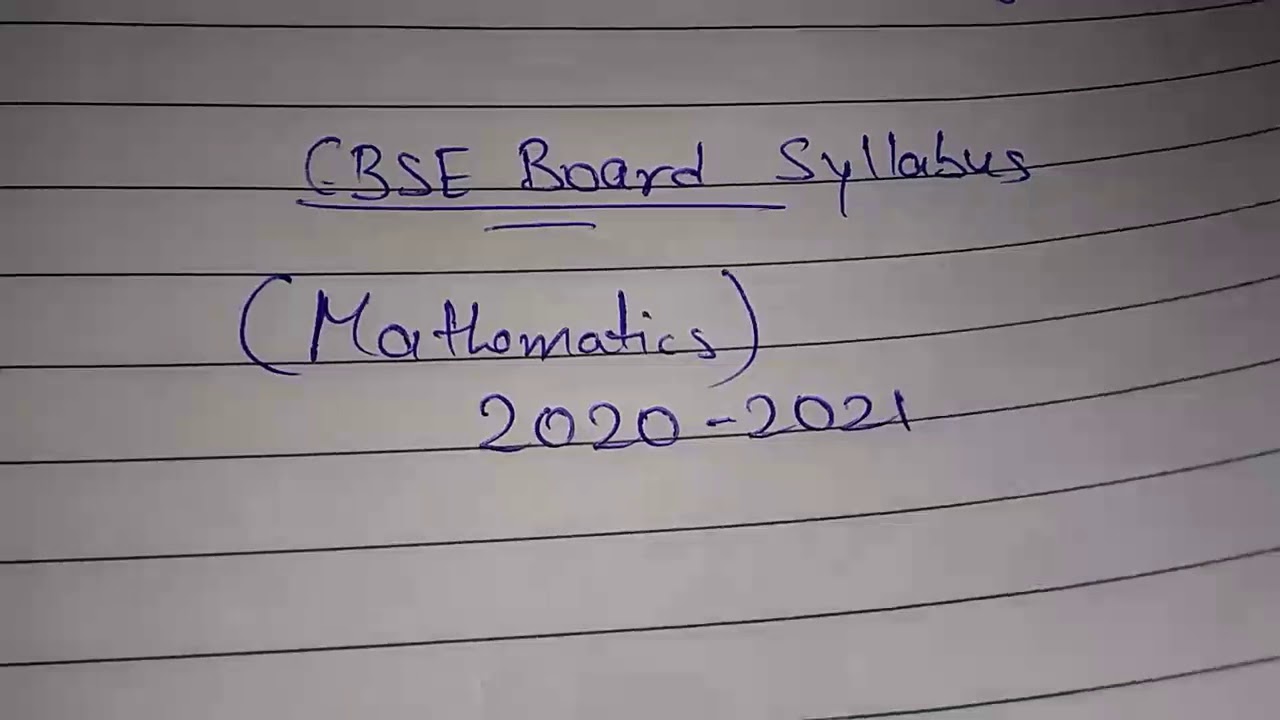 CBSE Board Syllabus
(Mathematics)
2020-2021